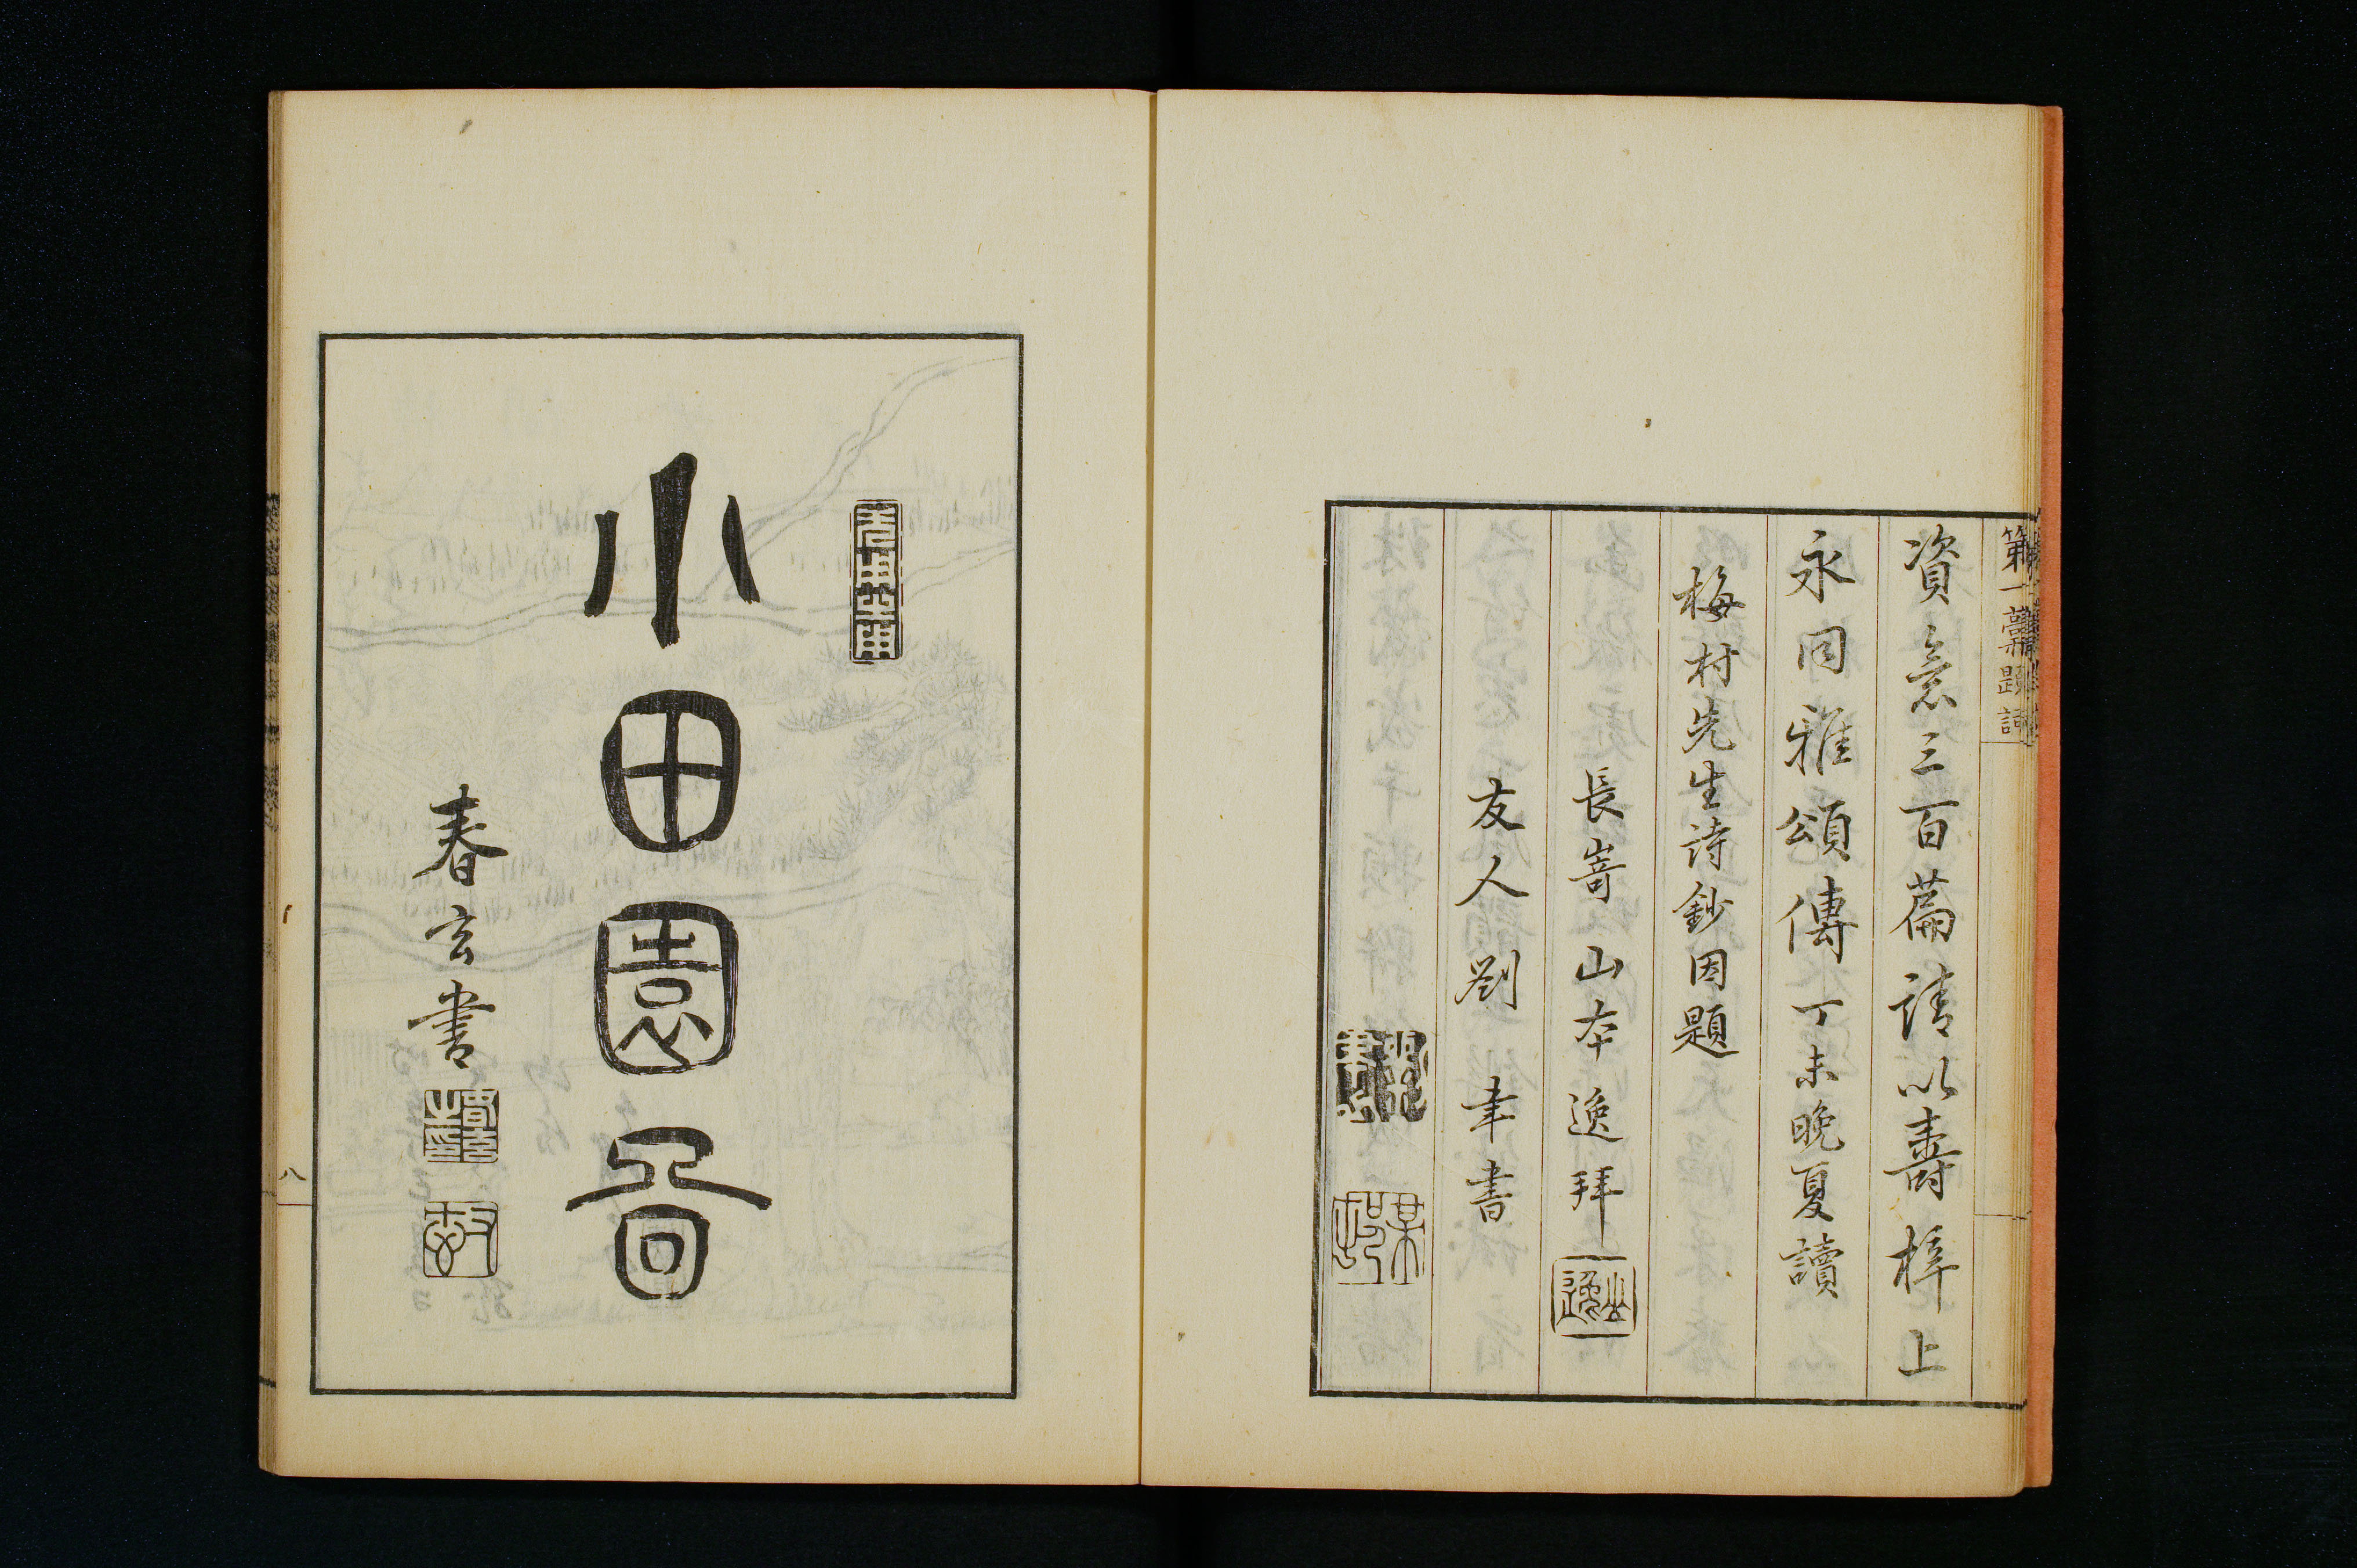 資意三百篇請以壽梓上
永同雅頌傳丁未晩夏讀
梅村先生詩鈔因題
長嵜山本逸拜
友人劉聿書
小田園啚
春玄書
八